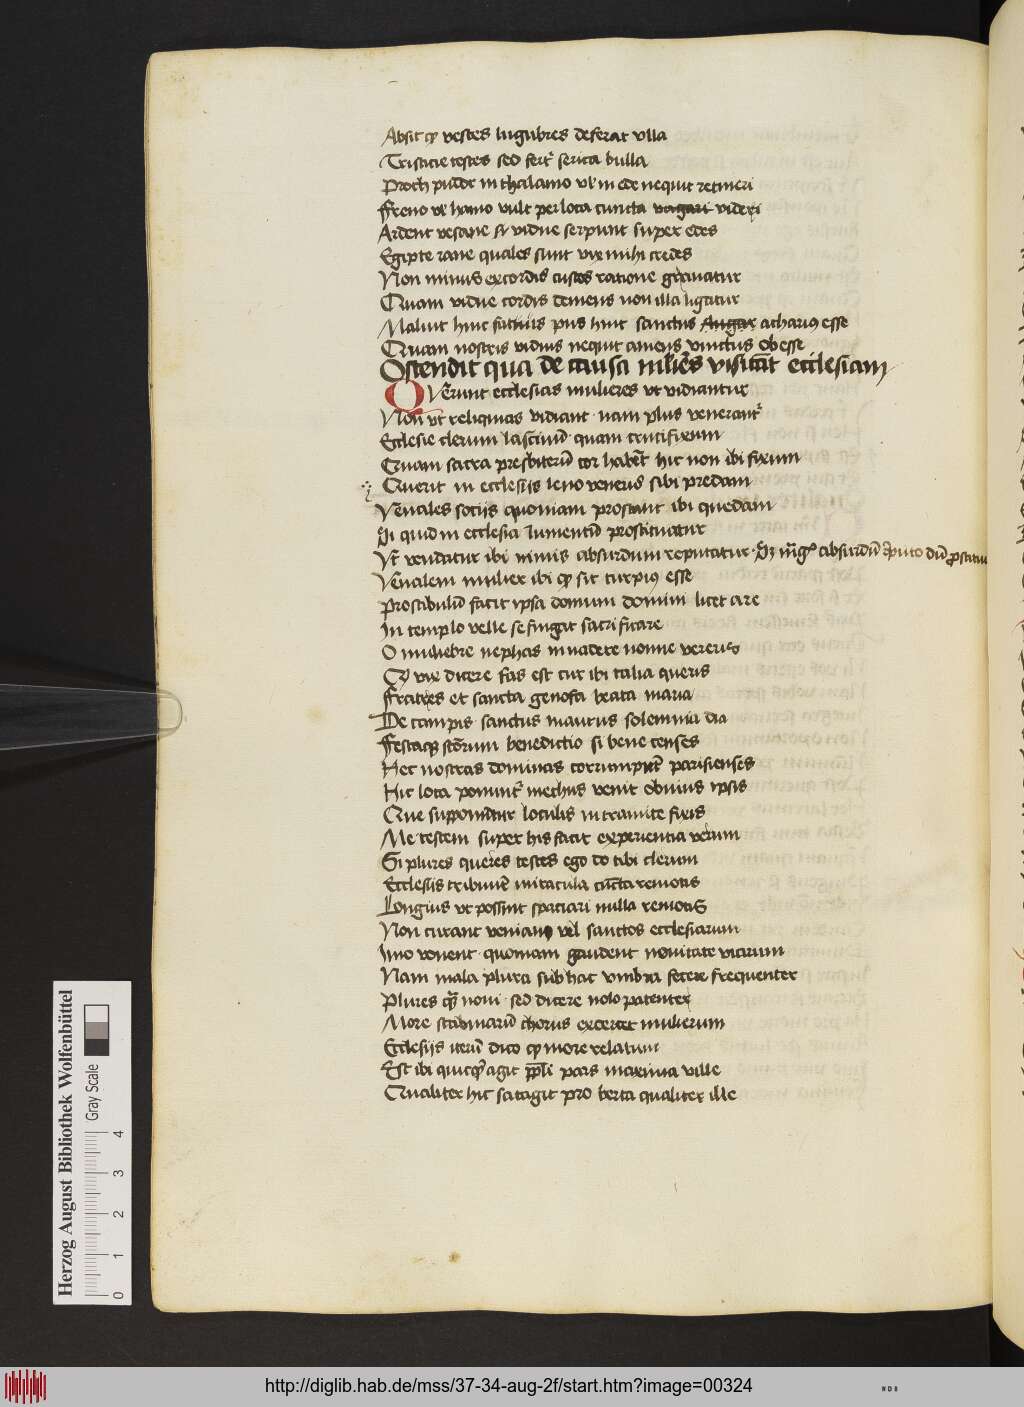 Absit qͥ vestes lugubres deferat vlla
Tristicie testes sed fert᷑ serica bulla
Proch pudor in thalamo vl̕ in ede nequit retineri
Freno vl̕ hamo vult per loca cuncta vagari videri
Ardent vesane si vidue serpunt super edes
Egipte rane quales sunt vix mihi credes
Non minus excordis custos ratione grauatur
Quam vidue cordis demens non illa ligatur
Maluit hinc fatuus pus hinc sanctus acharius esse
Quam nostris viduis nequit amens vinctus obesse
Ostendit qua de causa mulieres visitāt ecclesiam
QVerunt ecclesias mulieres vt vidiantur
Non vt reliquias vidiant nam plus venerant᷑
Ecclesie clerum lasciuū quam crucifixum
Quam sacra presbiterū cor habēt hic non ibi fixum
Querit in ecclesiis leno veneris sibi predam
Venales sociis quoniam prostant ibi quedam
Si quid in ecclesia Iumentū prostituatur
Vt vendatur ibi nimis absurdum reputatur
Venalem mulier ibi qͥ sit turpius esse
Prostibulū facit ipsa domum domini licet are
In templo velle se fingat sacrificare
O muliebre nephas inuadere nonne vereris
Qd̕ vix dicere fas est cur ibi talia queris
Fratres et sancta genofa beata maria
De campis sanctus maurus solemnia dia
Festaqȝ sctōrum benedictio si bene censes
Hec nostras dominas corrumpūt parisienses
Hic loca ponunt᷑ mechus venit obuius ipsis
Que supponātur loculis in tramite fixis
Me testem super his facit experientia verum
Si plures queres testes ego do tibi clerum
Ecclesiis tribuunt miracula cūcta remotis
Longius vt possint spaciari nulla remotis
Non curant veniam vel sanctos ecclesiarum
Imo venent quoniam gaudent nouitate viarum
Nam mala plura sub hac vmbra fecere frequenter
Plures qͣ noui sed dicere nolo patenter
More scabinarū chorus exercet mulierum
Ecclesiis iterū dico qͥ more relatum
Est ibi quicqͥd agit ppl̄i pars maxima ville
Qualiter hic satagit pro berta qualiter ille
Herzog August Bibliothek Wolfenbüttel
Gray Scale
0 1 2 3 4
http://diglib.hab.de/mss/37-34-aug-2f/start.htm?image=00324